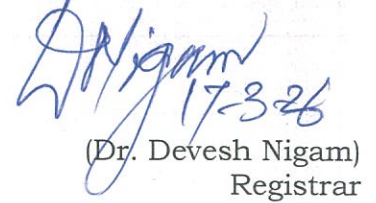 DNigam
17-3-26
(Dr. Devesh Nigam)
Registrar